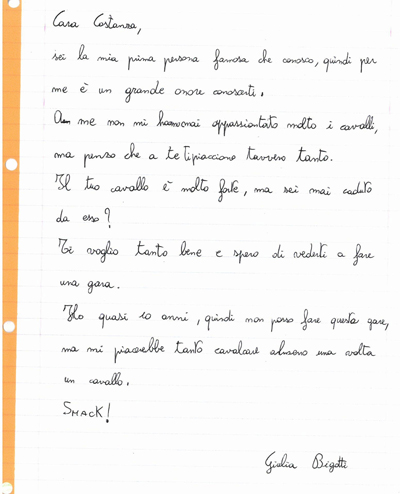 Cara Costanza,
sei la mia prima persona famosa che conosco, quindi per
me è un grande onore conoscerti.
A me non mi hanno mai appassionato molto i cavalli,
ma penso che a te ti piacciono davvero tanto.
Il tuo cavallo è molto forte, ma sei mai caduto
da esso?
Ti voglio tanto bene e spero di vederti a fare
una gara.
Ho quasi 10 anni, quindi non posso fare questa gare,
ma mi piacerebbe tanto cavalcare almeno una volta
un cavallo.
SMACK!
Giulia Bigotti